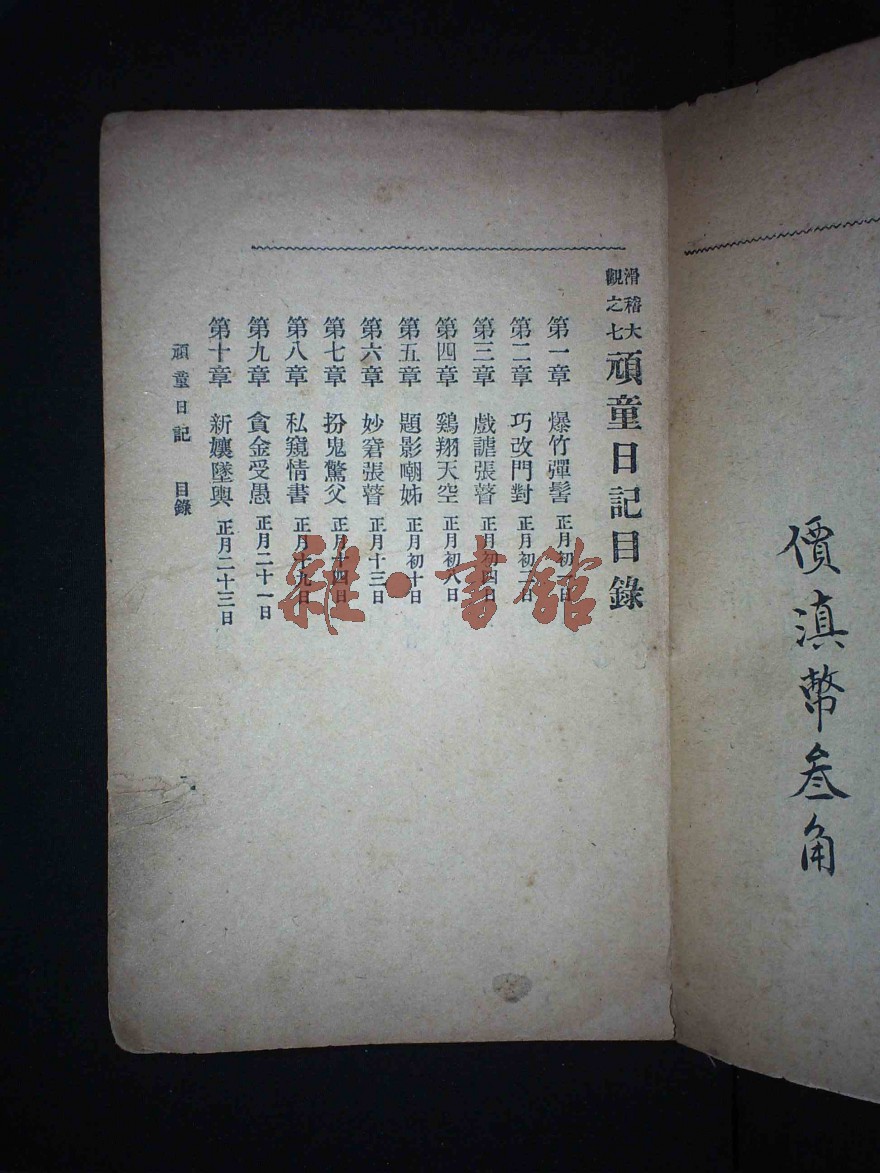 價滇幣叁角
滑稽大觀之七 頑童日記目錄
第一章 爆竹彈髻 正月初一日
第二章 巧改門對 正月初二日
第三章 戲謔張瞽 正月初四日
第四章 鷄翔天空 正月初八日
第五章 題影嘲姊 正月初十日
第六章 妙窘張瞽 正月十三日
第七章 扮鬼驚父 正月十四日
第八章 私窺情書 正月十九日
第九章 貪金受愚 正月二十一日
第十章 新孃墜輿 正月二十三日
頑童日記 目錄
雜·書館